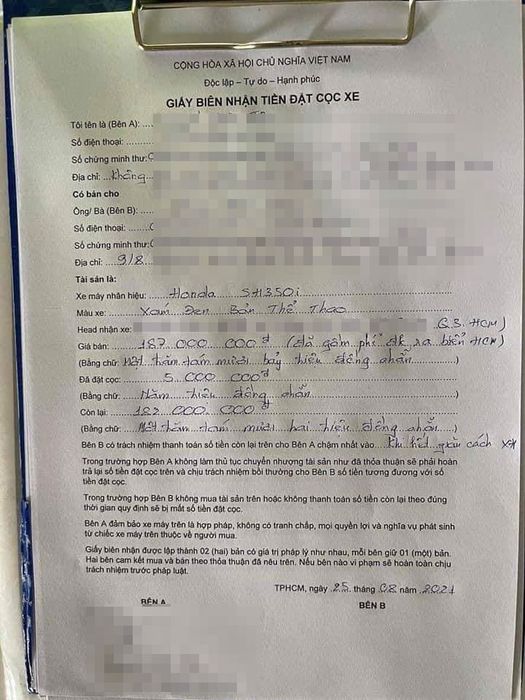 CỘNG HÒA XÃ HỘI CHỦ NGHĨA VIỆT NAM
Độc lập – Tự do – Hạnh phúc
GIẤY BIÊN NHẬN TIỀN ĐẶT CỌC XE
Tôi tên là (Bên A):
Số điện thoại:
Số chứng minh thư:
Địa chỉ:
Có bán cho
Ông/ Bà (Bên B):
Số điện thoại:
Số chứng minh thư:
Địa chỉ: 9/8
Tài sản là:
Xe máy nhãn hiệu: Honda SH350i
Màu xe: Xám Đen Bản Thể Thao
Head nhận xe:
Giá bán: 187.000.000đ (đã gồm phí đk ra biển HCM)
(Bằng chữ: Một trăm tám mươi bảy triệu đồng chẵn)
Đã đặt cọc: 5.000.000đ
(Bằng chữ: Năm triệu đồng chẵn)
Còn lại: 182.000.000đ
(Bằng chữ: Một trăm tám mươi hai triệu đồng chẵn)
Bên B có trách nhiệm thanh toán số tiền còn lại trên cho Bên A chậm nhất vào... Khi hết giãn cách XH
Trong trường hợp Bên A không làm thủ tục chuyển nhượng tài sản như đã thỏa thuận sẽ phải hoàn
trả lại số tiền đặt cọc trên và chịu trách nhiệm bồi thường cho Bên B số tiền tương đương với số
tiền đặt cọc.
Trong trường hợp Bên B không mua tài sản trên hoặc không thanh toán số tiền còn lại theo đúng
thời gian quy định sẽ bị mất số tiền đặt cọc.
Bên A đảm bảo xe máy trên là hợp pháp, không có tranh chấp, mọi quyền lợi và nghĩa vụ phát sinh
từ chiếc xe máy trên thuộc về người mua.
Giấy biên nhận được lập thành 02 (hai) bản có giá trị pháp lý như nhau, mỗi bên giữ 01 (một) bản.
Hai bên cam kết mua và bán theo thỏa thuận đã nêu trên. Nếu bên nào vi phạm sẽ hoàn toàn chịu
trách nhiệm trước pháp luật.
TPHCM, ngày 25 tháng 08 năm 2021
BÊN A BÊN B